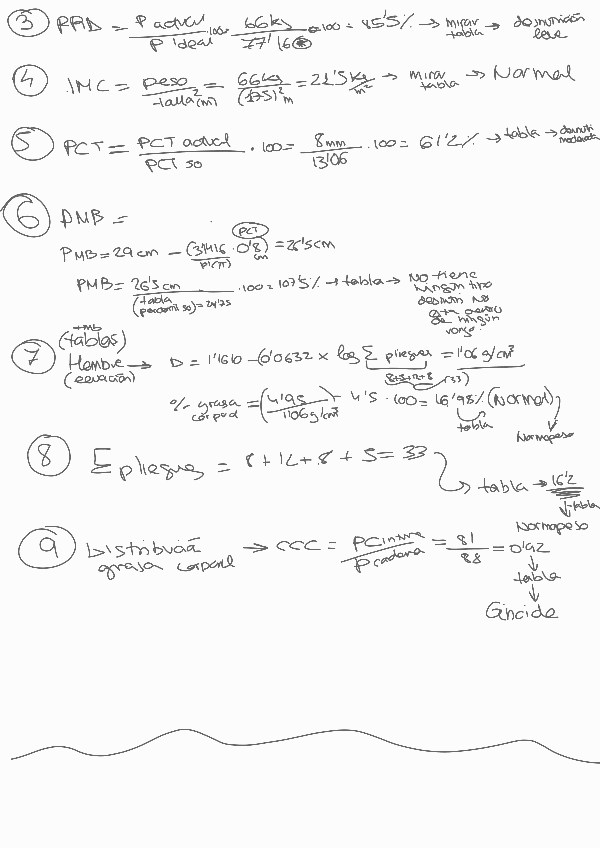 ③ PAD = P actual / P ideal · 100 = 66kg / 77'16 · 100 = 85'5% → mirar tabla → desnutrición leve
④ IMC = peso / talla² (m) = 66kg / (1'75)² m = 21'5 kg/m² → mirar tabla → Normal
⑤ PCT = PCT actual / PCT 50 · 100 = 8mm / 13'06 · 100 = 61'2% → tabla → moderada
⑥ PMB =
PMB = 29 cm - (3'1416 · 0'8 cm) = 26'5cm
PCT
PI (π)
PMB = 26'5 cm / · 100 = 107'5% → tabla → No tiene ningún tipo
(tabla percentil 50) =
desnutri No
de ningún
(tablas)
⑦ Hombre → D = 1'1610 - (0'0632 x log Σ pliegues = 1'06 g/cm³
(ecuación)
8+5+12+8 (33)
% grasa corporal = (4'95 / 1'06 g/cm³) - 4'5 · 100 = 16'98% (Normal)
tabla
Normopeso
⑧ Σ pliegues = 8 + 12 + 8 + 5 = 33
→ tabla → 16'2
tabla
Normopeso
⑨ Distribución grasa corporal → CCC = P Cintura / P cadera = 81 / 88 = 0'92
tabla
Ginoide